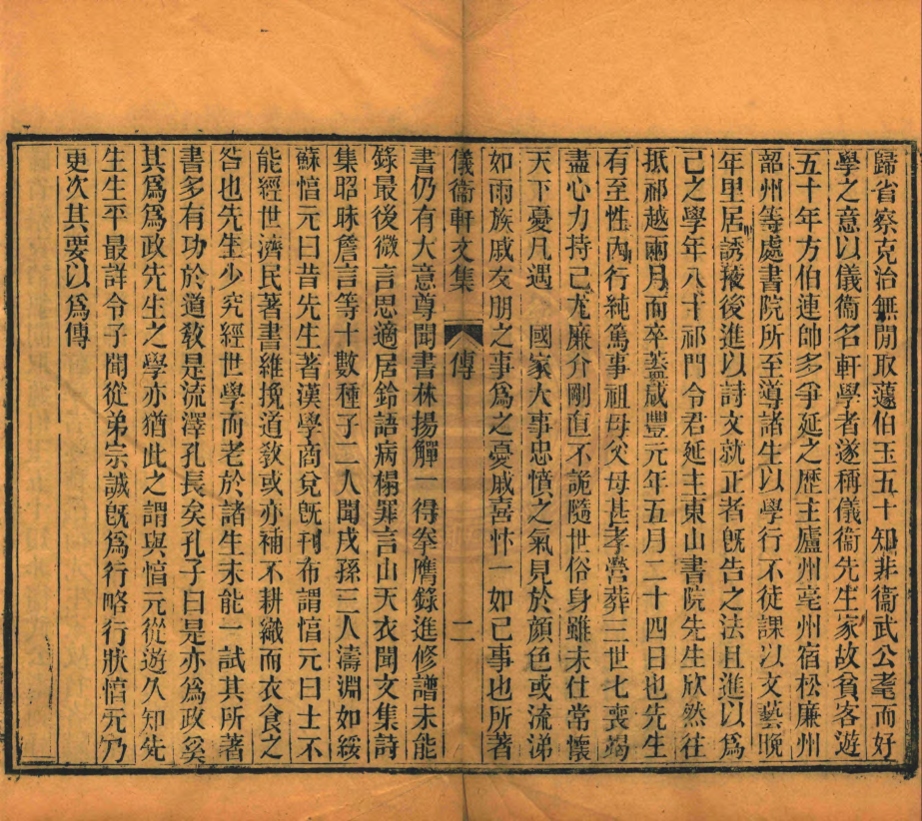 歸省察克治無閒取蘧伯玉五十知非衞武公耄而好
學之意以儀衞名軒學者遂稱儀衞先生家故貧客遊
五十年方伯連帥多爭延之歴主廬州亳州宿松廉州
韶州等處書院所至導諸生以學行不徒課以文藝晚
年里居誘掖後進以詩文就正者旣告之法且進以爲
己之學年八十祁門令君延主東山書院先生欣然往
抵祁越兩月而卒葢咸豐元年五月二十四日也先生
有至性內行純篤事祖母父母甚孝營葬三世七喪竭
盡心力持己尤廉介剛直不詭隨世俗身雖未仕常懷
天下憂凡遇 國家大事忠憤之氣見於顔色或流涕
如雨族戚友朋之事爲之憂戚喜忭一如己事也所著
儀衞軒文集 傳 二
書仍有大意尊聞書林揚觶一得拳膺錄進修譜未能
錄最後微言思適居鈴語病榻罪言山天衣聞文集詩
集昭昧詹言等十數種子二人聞戌孫三人濤淵如綏
蘇惜元曰昔先生著漢學商兌旣刊布謂惜元曰士不
能經世濟民著書維挽道敎或亦補不耕織而衣食之
咎也先生少究經世學而老於諸生未能一試其所著
書多有功於道敎是流澤孔長矣孔子曰是亦爲政奚
其爲爲政先生之學亦猶此之謂與惜元從遊久知先
生生平最詳令子聞從弟宗誠旣爲行略行狀惜元乃
更次其要以爲傳